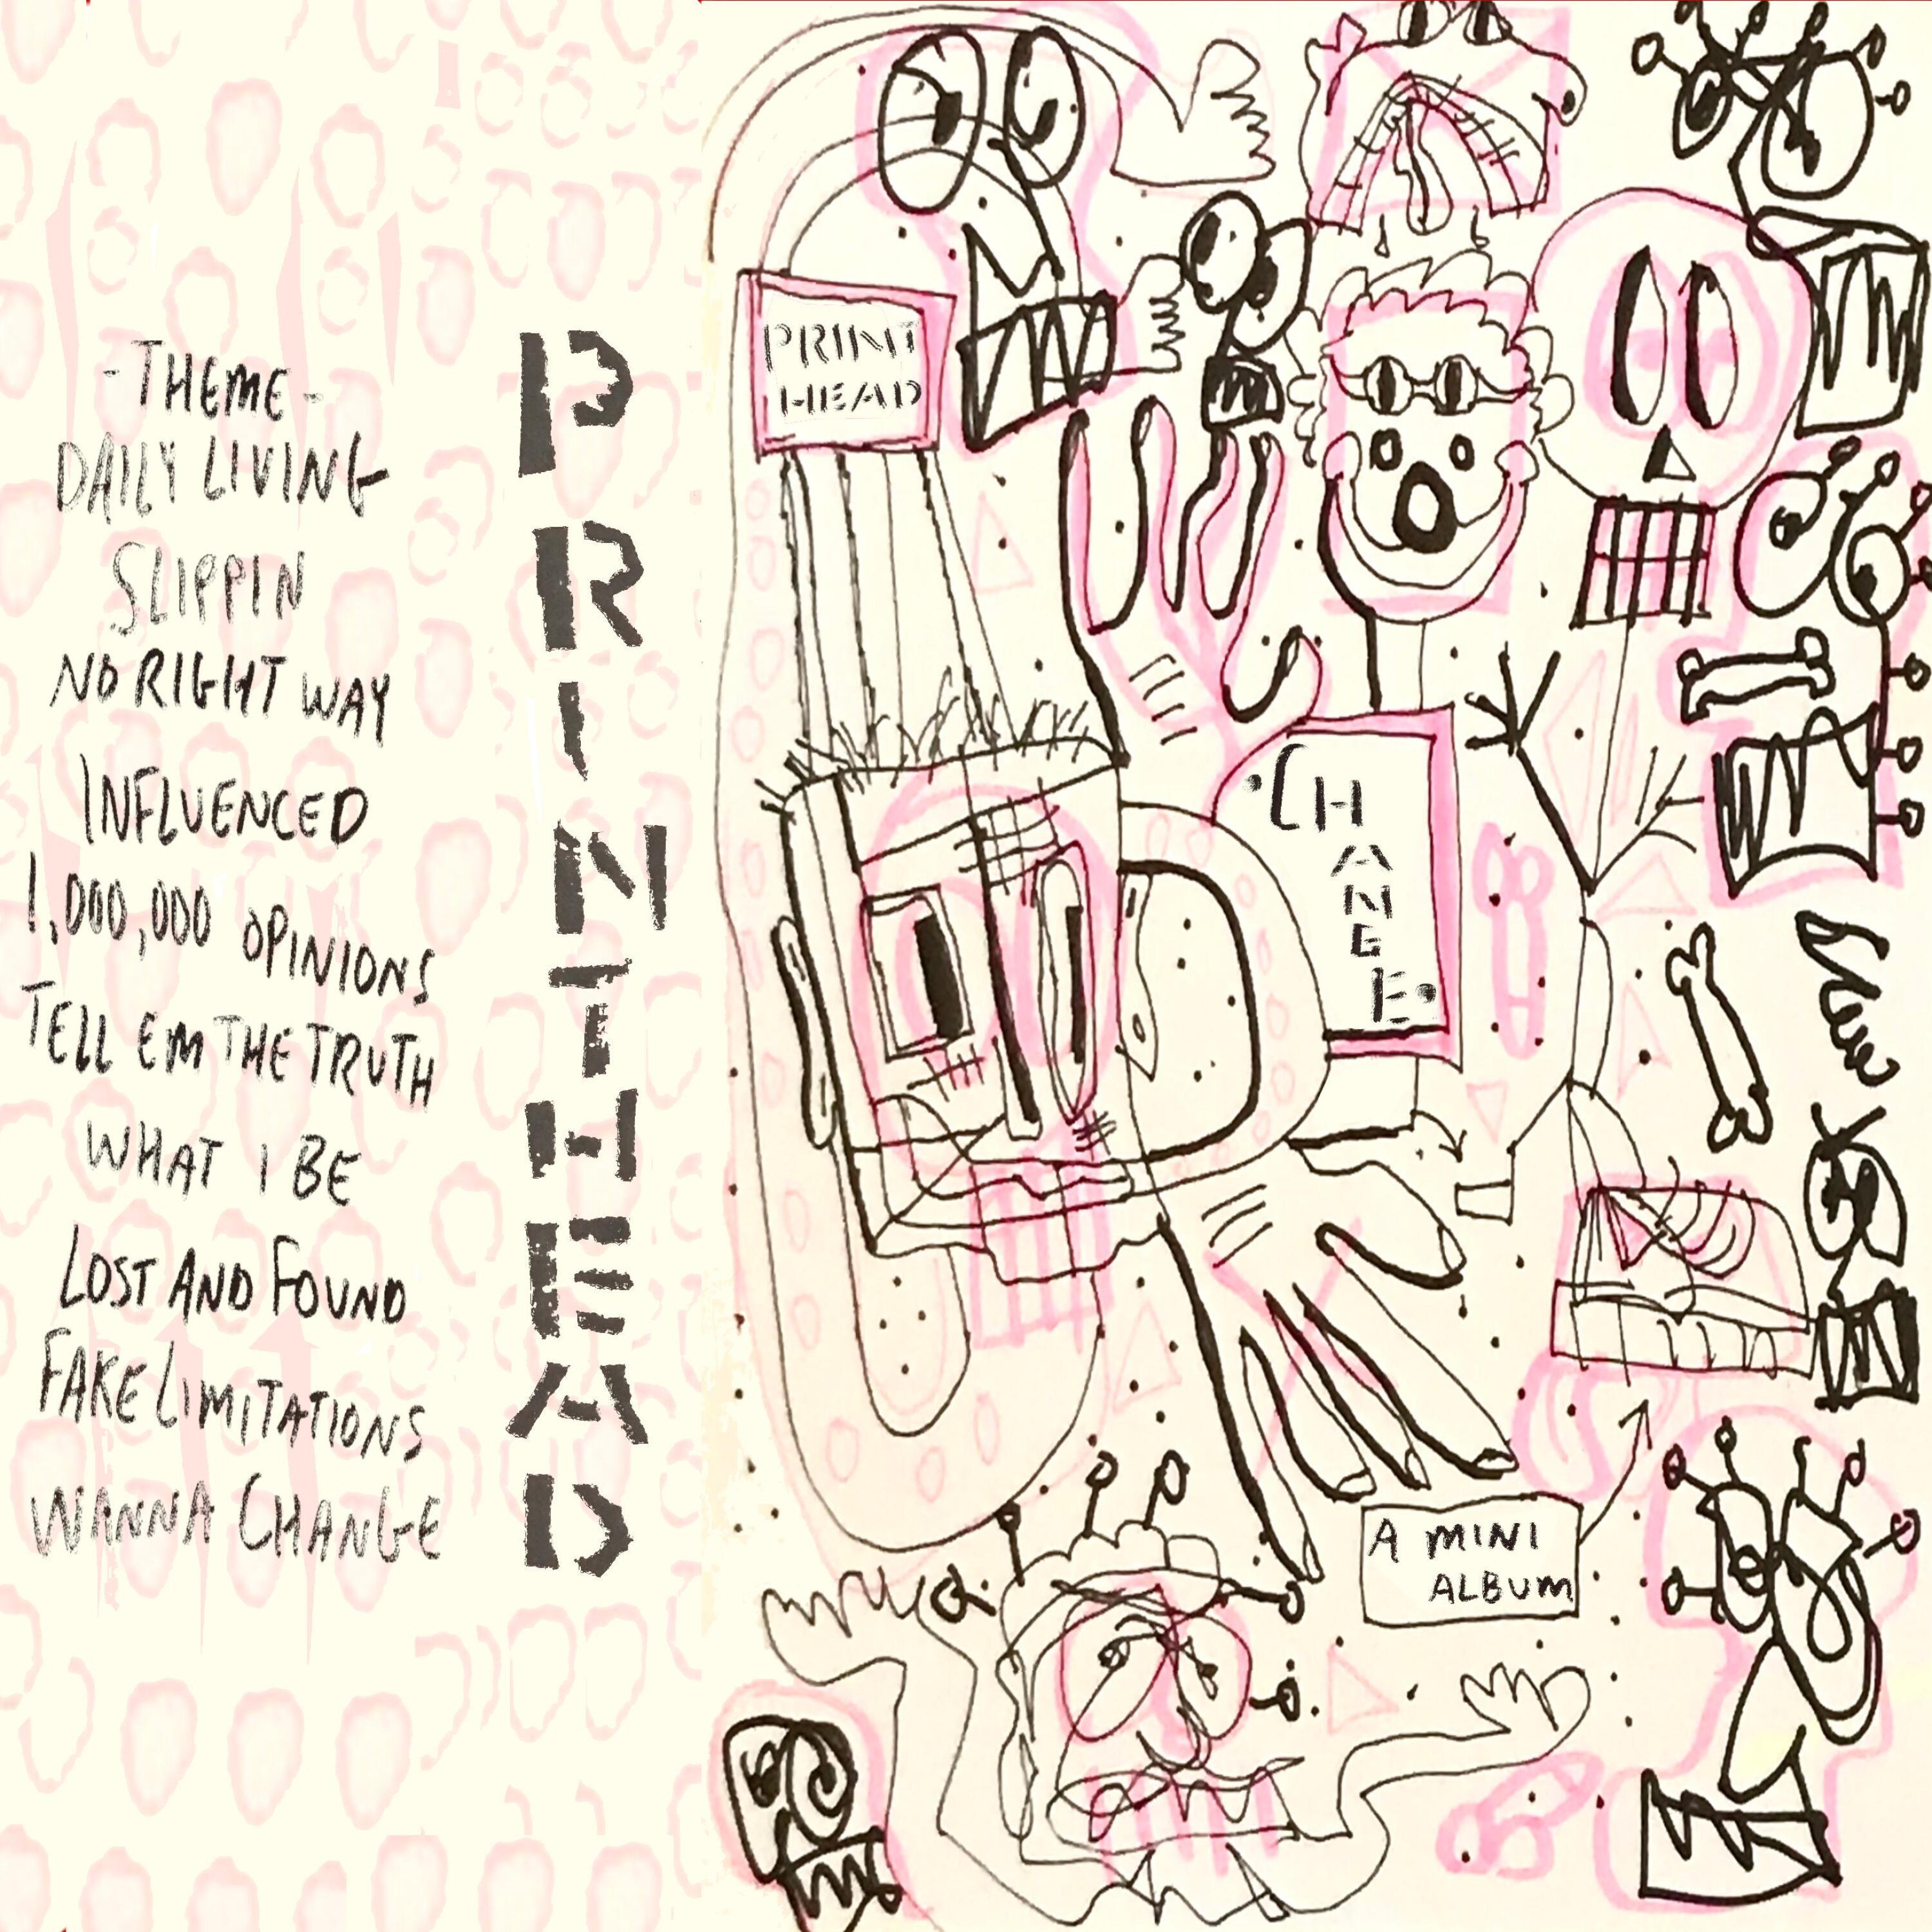 - THEME -
DAILY LIVING
SLIPPIN
NO RIGHT WAY
INFLUENCED
1,000,000 OPINIONS
TELL EM THE TRUTH
WHAT I BE
LOST AND FOUND
FAKE LIMITATIONS
WANNA CHANGE
PRINTHEAD
PRINT
HEAD
CHANGE
A MINI
ALBUM